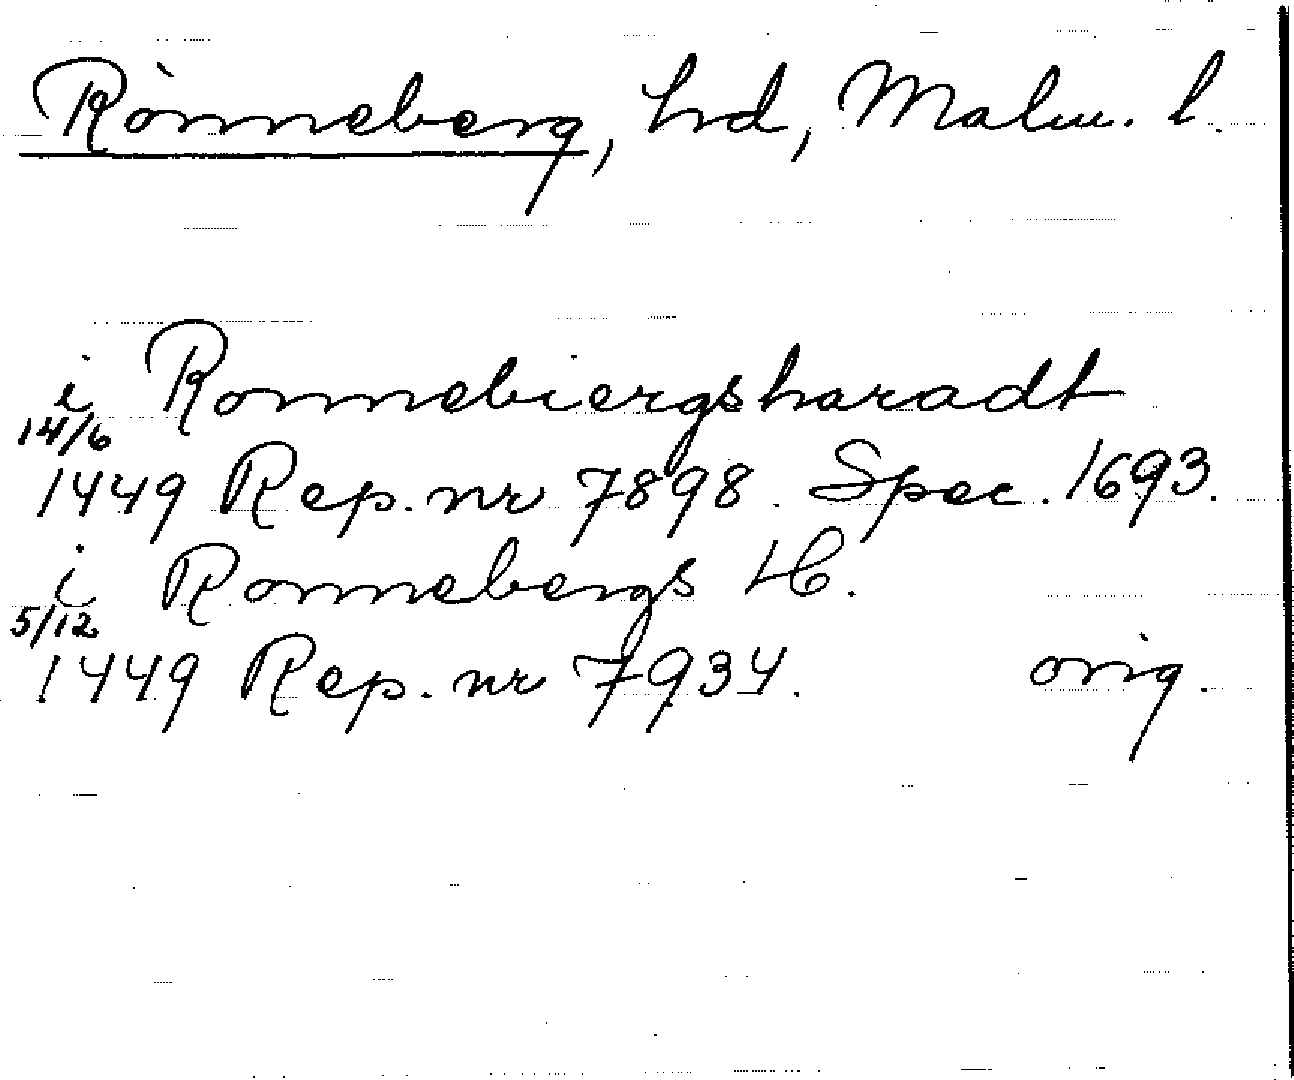 Rönneberg, hd, Malm. l.
i Ronnebiergsharadt
14/6
1449 Rep. nr 7898. Spec. 1693.
i Ronnebergs H.
5/12
1449 Rep. nr 7934. orig.